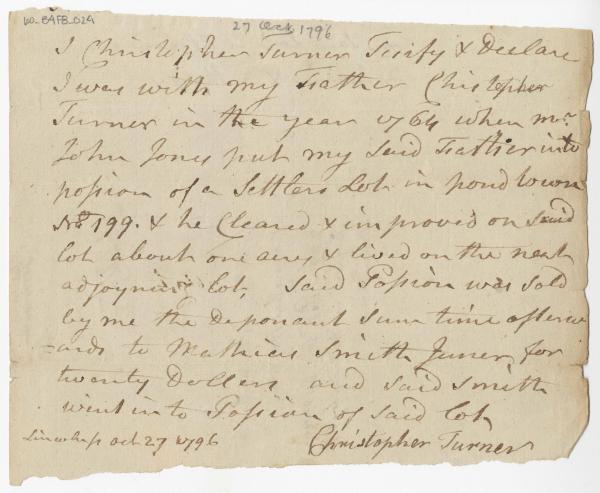 60_E4FB_024
27 Oct 1796
I Christopher Turner Tesify & Declare
I was with my Father Chistopher
Turner in the year 1764 when mr.
John Jones put my Said Father into
possion of a Settlers Lot in pond town
No 199. & he Cleared & improv'd on Said
Lot about one acres & lived on the next
adjoyning Lot, Said Possion was Sold
by me the Deponant Sum time afterw
=ards to Mathias Smith Juner for
twenty Dollers and Said Smith
went into Possion of Said Lot
Christopher Turner
oct 27 1796